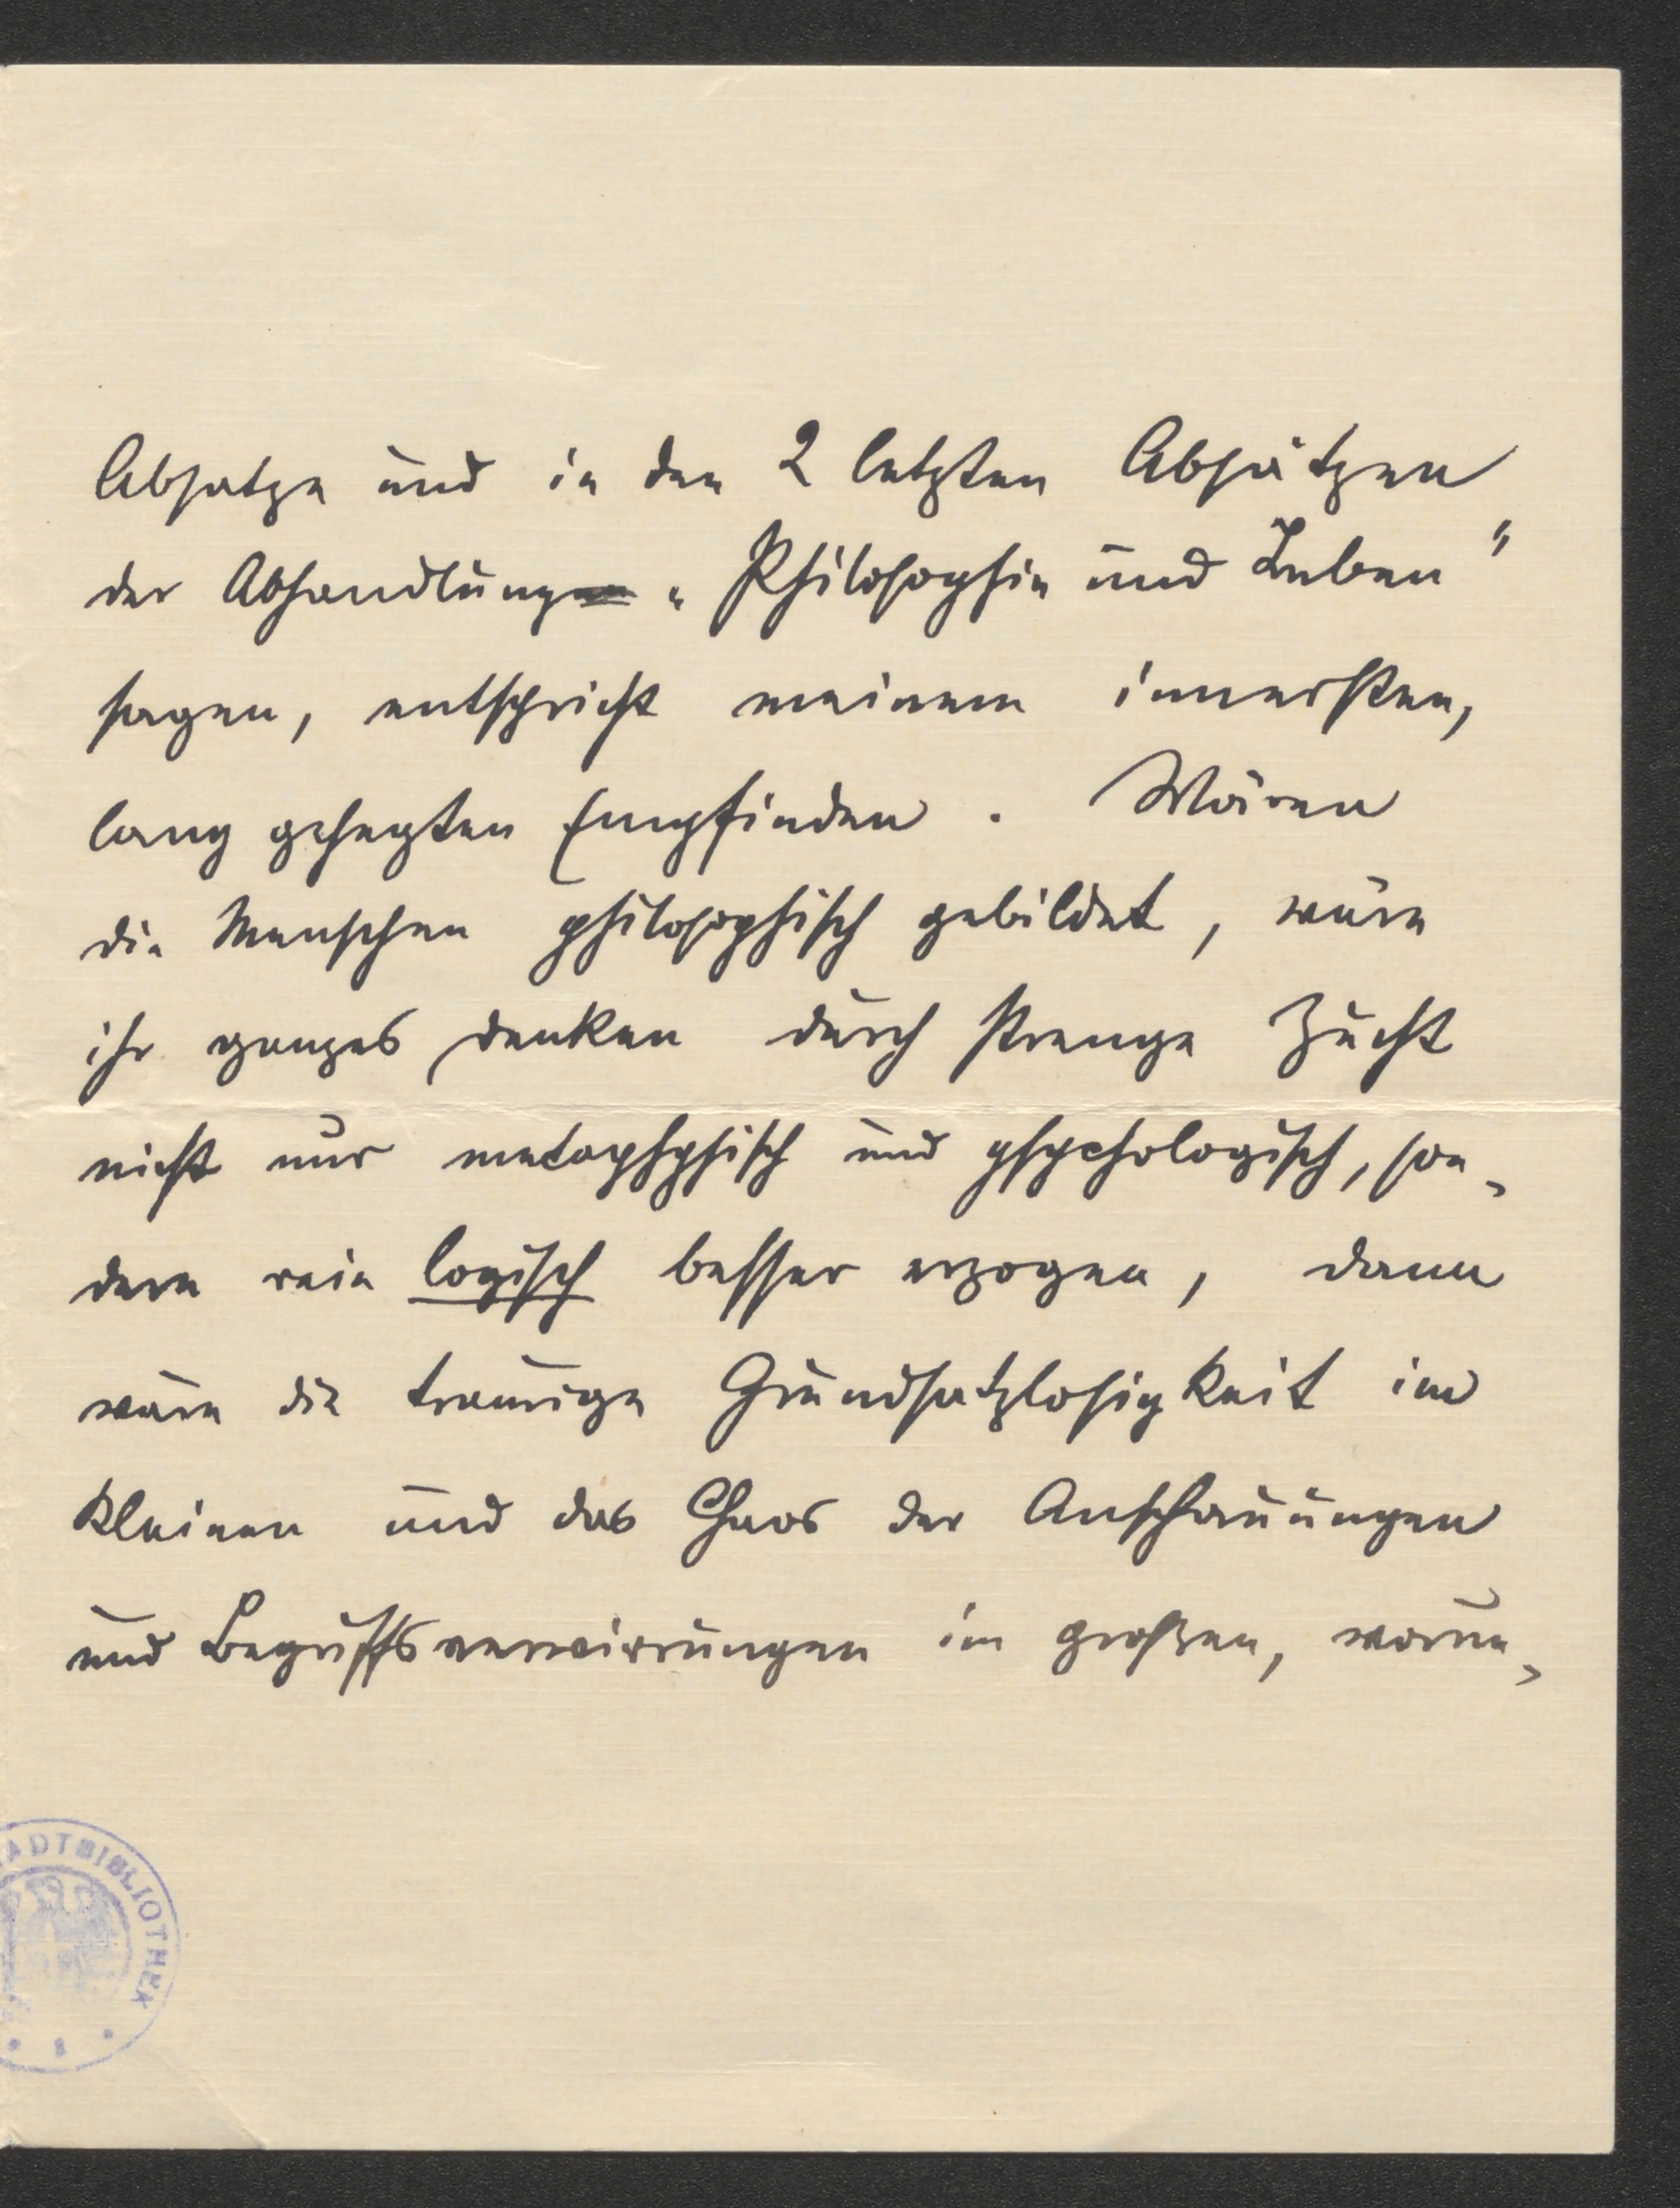 Absatze und in den 2 letzten Absätzen
der Abhandlung „Philosophie und Leben"
sagen, entspricht meinem innersten,
lang gehegten Empfinden. Wären
die Menschen philosophisch gebildet, wäre
ihr ganzes Denken durch strenge Zucht
nicht nur metaphysisch und psychologisch, son-
dern rein logisch besser erzogen, dann
wäre die traurige Grundsatzlosigkeit im
kleinen und das Chaos der Anschauungen
und Begriffsverwirrungen im großen, worun-
ADTBIBLIOTHEK